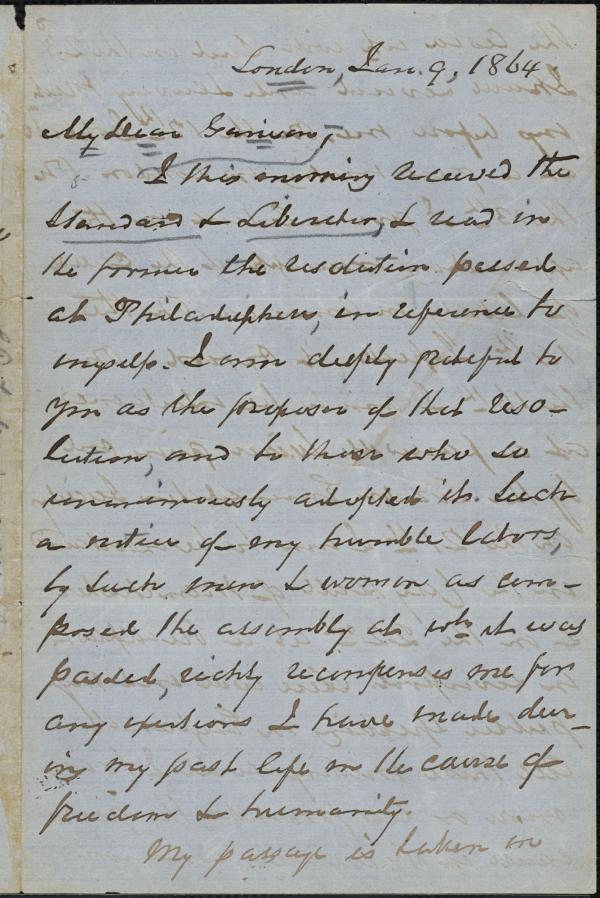 London, Jan. 9, 1864
My Dear Garrison,
I this morning received the
Standard & Liberator, & read in
the former the resolution passed
at Philadelphia, in reference to
myself. I am deeply grateful to
you as the proposer of that reso-
lution, and to those who so
unanimously adopted it. Such
a notice of my humble labors,
by such men & women as com-
posed the assembly at wh. it was
passed, richly recompenses me for
any exertions I have made dur-
ing my past life in the cause of
freedom & humanity.
My passage is taken in